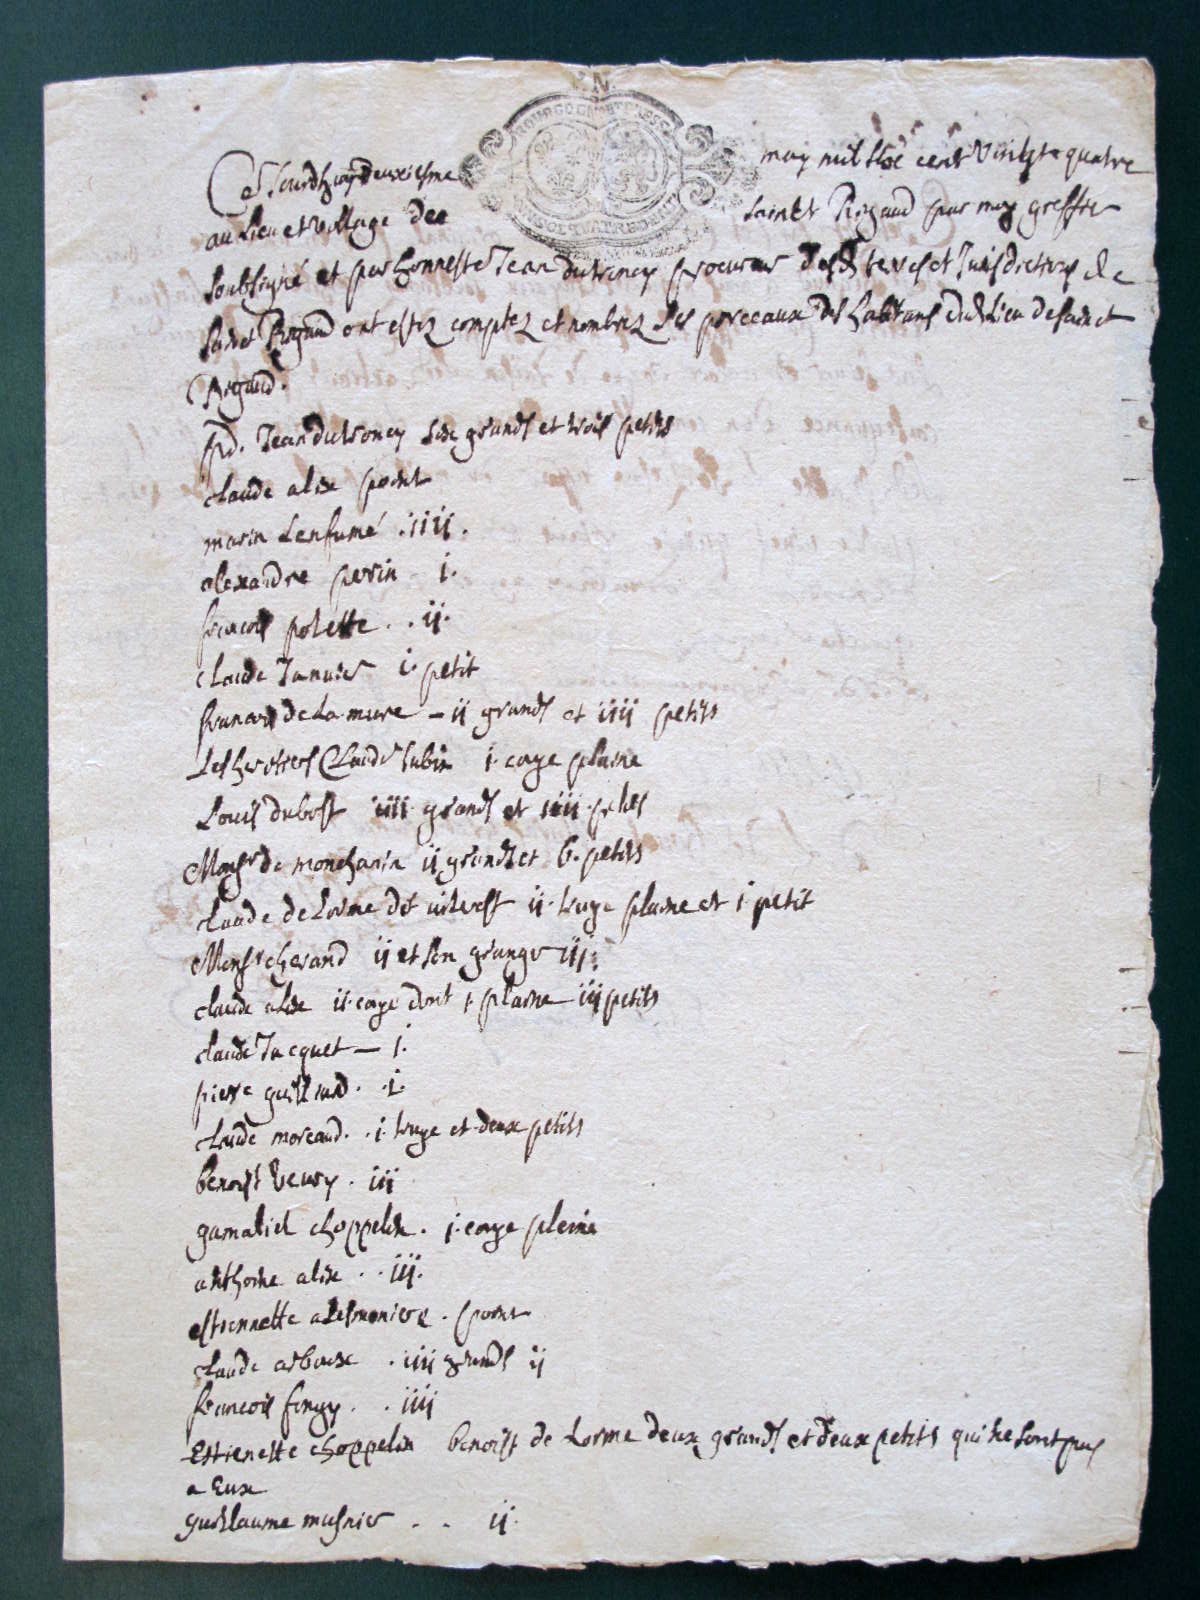 Ce Jourdhuy deuxiesme may mil six cent vinktz quatre
au lieu et village de sainct Rigaud par moy greffier
soubsigné et par honneste Jean dutroncy procureur desd terres et Jurisdictions de
sainct Rigaud ont estez comptez et nombrez les porceaux des habitans dud lieu de sainct
Rigaud.
Jean dutroncy six grands et trois petits
claude alix point
marin Lenfumé . iiii .
alexandre perin . i .
francois polette . . ii .
claude Januier i . petit
francois de La mure – ii grands et iiii petits
Les heritiers Claude i . coye plaine
Louis dubost iiii grands et iiii petits
Monsr de moncharin ii grands et 6 . petits
claude de Lorme dit ii . truye plaine et i petit
Monsr cherand ii et son granger iii .
claude alix ii . coye dont i plaine iii petits
claude Jacquet — i .
pierre guillard . . i .
claude moreaud . . i . truye et deux petits
benoist veury . iii
gamaliel choppelin . i . coye pleine
anthoine alix . . iii .
estiennette alesmoniere . point
claude arboux . iiii grands ii
francois fongy . . iiii
Estienette choppelin benoist de Lorme deux grands et deux petits qui ne sont pas
a Eux
guillaume musnier . . ii .